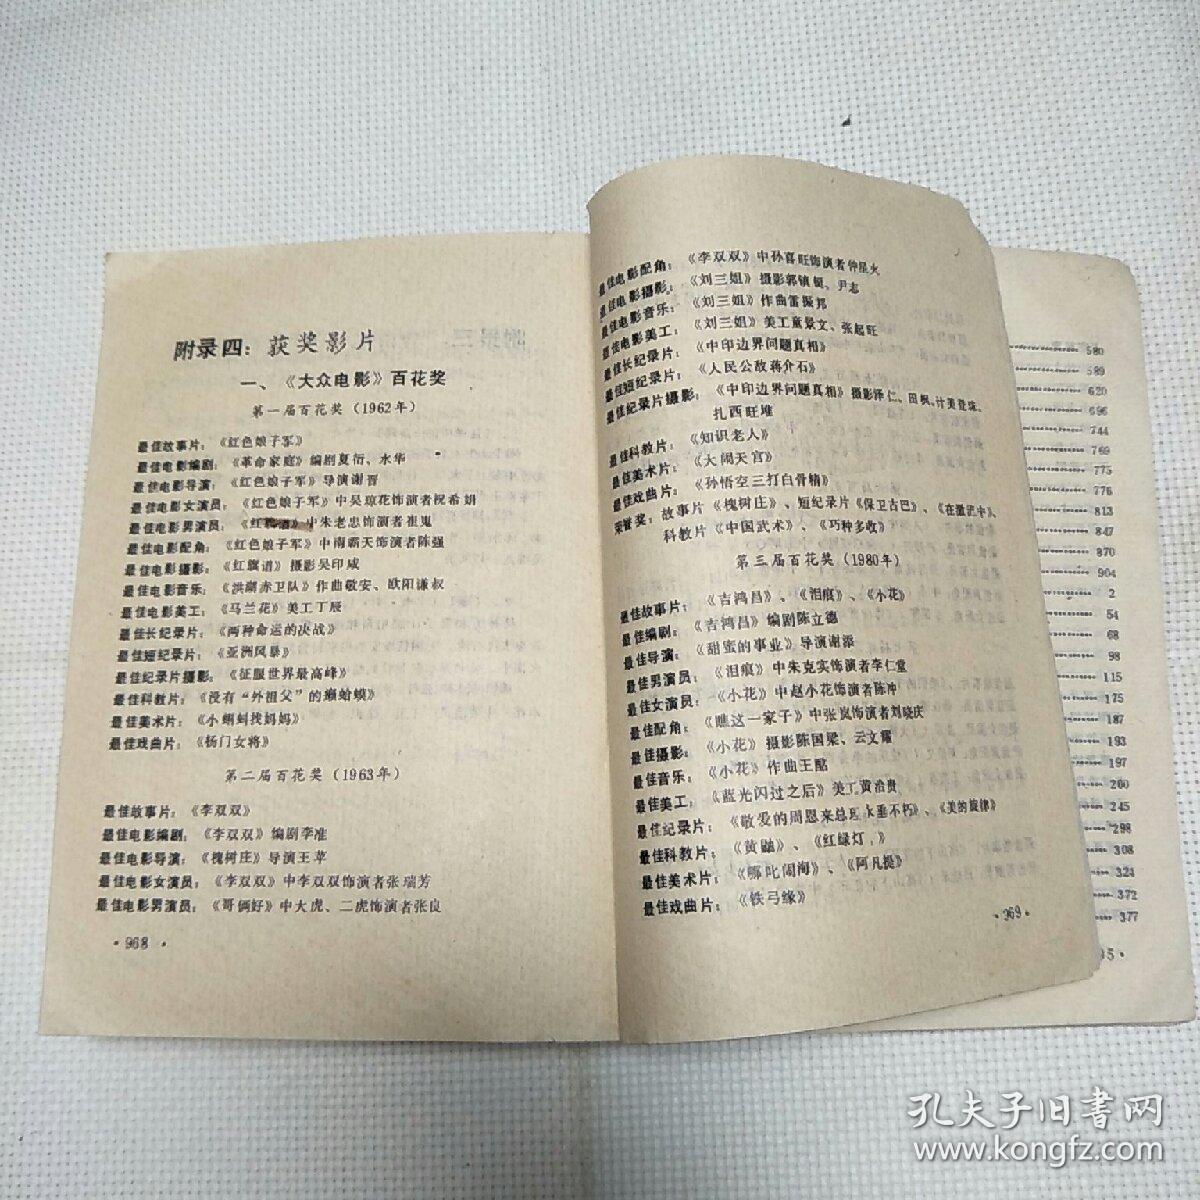 附录四：获奖影片
一、《大众电影》百花奖
第一届百花奖（1962年）
最佳故事片：《红色娘子军》
最佳电影编剧：《革命家庭》编剧夏衍、水华
最佳电影导演：《红色娘子军》导演谢晋
最佳电影女演员：《红色娘子军》中吴琼花饰演者祝希娟
最佳电影男演员：《红旗谱》中朱老忠饰演者崔嵬
最佳电影配角：《红色娘子军》中南霸天饰演者陈强
最佳电影摄影：《红旗谱》摄影吴印咸
最佳电影音乐：《洪湖赤卫队》作曲敬安、欧阳谦叔
最佳电影美工：《马兰花》美工丁辰
最佳长纪录片：《两种命运的决战》
最佳短纪录片：《亚洲风暴》
最佳纪录片摄影：《征服世界最高峰》
最佳科教片：《没有“外祖父”的癞蛤蟆》
最佳美术片：《小蝌蚪找妈妈》
最佳戏曲片：《杨门女将》
第二届百花奖（1963年）
最佳故事片：《李双双》
最佳电影编剧：《李双双》编剧李准
最佳电影导演：《槐树庄》导演王苹
最佳电影女演员：《李双双》中李双双饰演者张瑞芳
最佳电影男演员：《哥俩好》中大虎、二虎饰演者张良
·968·
最佳电影配角：《李双双》中孙喜旺饰演者仲星火
最佳电影摄影：《刘三姐》摄影郭镇铤、尹志
最佳电影音乐：《刘三姐》作曲雷振邦
最佳电影美工：《刘三姐》美工童景文、张起旺
最佳长纪录片：《中印边界问题真相》
最佳短纪录片：《人民公敌蒋介石》
最佳纪录片摄影：《中印边界问题真相》摄影泽仁、田枫、计美登珠、
扎西旺堆
最佳科教片：《知识老人》
最佳美术片：《大闹天宫》
最佳戏曲片：《孙悟空三打白骨精》
荣誉奖：故事片《槐树庄》、短纪录片《保卫古巴》、《在激流中》、
科教片《中国武术》、《巧种多收》
第三届百花奖（1980年）
最佳故事片：《吉鸿昌》、《泪痕》、《小花》
最佳编剧：《吉鸿昌》编剧陈立德
最佳导演：《甜蜜的事业》导演谢添
最佳男演员：《泪痕》中朱克实饰演者李仁堂
最佳女演员：《小花》中赵小花饰演者陈冲
最佳配角：《瞧这一家子》中张岚饰演者刘晓庆
最佳摄影：《小花》摄影陈国梁、云文耀
最佳音乐：《小花》作曲王酩
最佳美工：《蓝光闪过之后》美工黄洽贵
最佳纪录片：《敬爱的周恩来总理永垂不朽》、《美的旋律》
最佳科教片：《黄鼬》、《红绿灯》
最佳美术片：《哪吒闹海》、《阿凡提》
最佳戏曲片：《铁弓缘》
·969·
580
589
620
696
744
769
775
776
813
847
870
904
2
54
68
98
115
175
187
193
197
200
245
298
308
323
372
377
孔夫子旧书网
www.kongfz.com